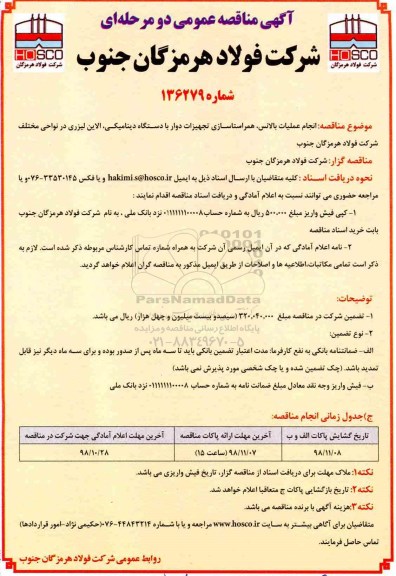 آگهی مناقصه عمومی دو مرحله‌ای
HOSCO
شرکت فولاد هرمزگان
HOSCO
شرکت فولاد هرمزگان
شرکت فولاد هرمزگان جنوب
شماره ۱۳۶۲۷۹
موضوع مناقصه: انجام عملیات بالانس، هم‌راستاسازی تجهیزات دوار با دستگاه دینامیکی، الاین لیزری در نواحی مختلف
شرکت فولاد هرمزگان جنوب
مناقصه گزار: شرکت فولاد هرمزگان جنوب
نحوه دریافت اسناد: کلیه متقاضیان با ارسال اسناد ذیل به ایمیل hakimi.s@hosco.ir و یا فکس ۳۳۵۳۰۱۴۵-۰۷۶ و یا
مراجعه حضوری می توانند نسبت به اعلام آمادگی و دریافت اسناد مناقصه اقدام نمایند:
۱- کپی فیش واریز مبلغ ۵۰۰،۰۰۰ ریال به شماره حساب ۰۱۱۱۱۱۱۱۰۰۰۰۸ نزد بانک ملی، به نام شرکت فولاد هرمزگان جنوب
بابت خرید اسناد مناقصه
۲- نامه اعلام آمادگی که در آن ایمیل رسمی آن شرکت به همراه شماره تماس کارشناس مربوطه ذکر شده است. لازم به
ذکر است تمامی مکاتبات، اطلاعیه ها و اصلاحات از طریق ایمیل مذکور به مناقصه گران اعلام خواهد گردید.
ParsNamadData
پایگاه اطلاع رسانی مناقصه و مزایده
۰۲۱-۸۸۳۴۹۶۷۰-۵
توضیحات:
۱- تضمین شرکت در مناقصه مبلغ ۳۲۰،۰۴۰،۰۰۰ (سیصدو بیست میلیون و چهل هزار) ریال می باشد.
۲- نوع تضمین:
الف- ضمانتنامه بانکی به نفع کارفرما: مدت اعتبار تضمین بانکی باید تا سه ماه پس از صدور بوده و برای سه ماه دیگر نیز قابل
تمدید باشد. (چک تضمین شده و یا چک شخصی مورد پذیرش نمی باشد)
ب- فیش واریز وجه نقد معادل مبلغ ضمانت نامه به شماره حساب ۰۱۱۱۱۱۱۱۰۰۰۰۸ نزد بانک ملی
ج) جدول زمانی انجام مناقصه:
تاریخ گشایش پاکات الف و ب آخرین مهلت ارائه پاکات مناقصه آخرین مهلت اعلام آمادگی جهت شرکت در مناقصه
۹۸/۱۱/۰۸ ۹۸/۱۱/۰۷ (ساعت ۱۵) ۹۸/۱۰/۲۸
نکته۱: ملاک مهلت برای دریافت اسناد از مناقصه گزار، تاریخ فیش واریزی می باشد.
نکته۲: تاریخ بازگشایی پاکات ج متعاقبا اعلام خواهد شد.
نکته۳: هزینه آگهی با برنده مناقصه می باشد.
متقاضیان برای آگاهی بیشتر به سایت www.hosco.ir مراجعه و یا با شماره ۴۴۸۴۳۲۱۴-۰۷۶ (حکیمی نژاد-امور قراردادها)
تماس حاصل فرمایند.
روابط عمومی شرکت فولاد هرمزگان جنوب